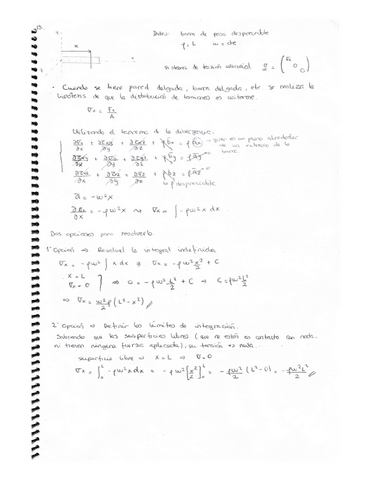 Datos: barra de peso despreciable
ρ, L   ω = cte
x
sistema de tensión uniaxial   σ = ( σx 0 0 )
- Cuando se tiene pared delgada, barra delgada, etc se realiza la
hipótesis de que la distribución de tensiones es uniforme.
σx = Fx / A
Utilizando el teorema de la divergencia:
∂σx/∂x + ∂τxy/∂y + ∂τxz/∂z + ρbx = ρ
barra
∂τxy/∂x + ∂σy/∂y + ∂τyz/∂z + ρby = ρ
ρ despreciable
a = -ω²x
∂σx/∂x = -ρω²x ⇒ σx = ∫ -ρω²x dx
Dos opciones para resolverlo:
1ª Opción ⇒ Realizar la integral indefinida
σx = -ρω² ∫ x dx ⇒ σx = -ρω² x²/2 + C
- x = L
σx = 0 } ⇒ 0 = -ρω² L²/2 + C ⇒ C = ρω² L²/2
⇒ σx = ω²/2 ρ (L² - x²)
2ª Opción ⇒ Definir los límites de integración.
Sabiendo que las superficies libres (que no están en contacto con nada
ni tienen ninguna fuerza aplicada), su tensión es nula.
superficie libre ⇒ x = L ⇒ σ = 0
σx = ∫₀ᴸ -ρω² x dx = -ρω² [x²/2]₀ᴸ = -ρω²/2 (L² - 0) = -ρω²L²/2